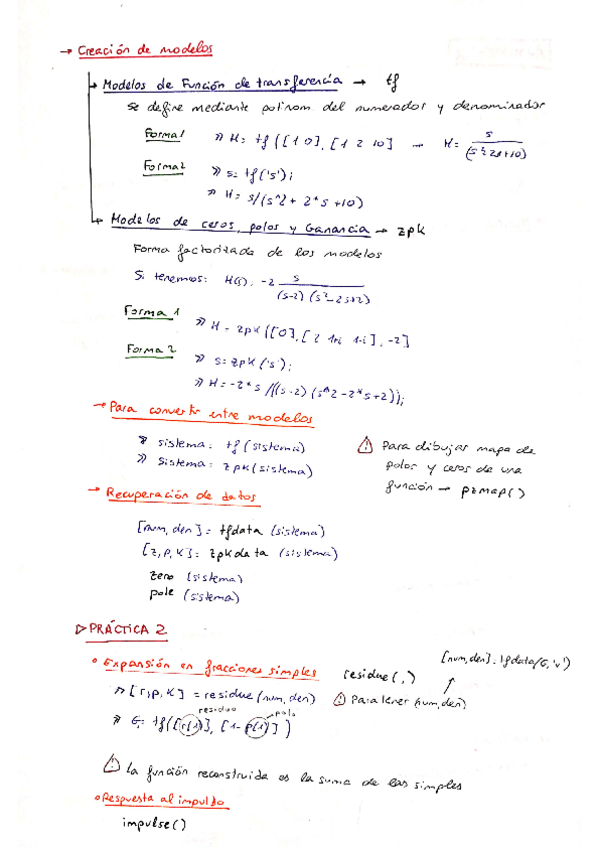 → Creación de modelos
→ Modelos de Función de transferencia → tf
Se define mediante polinom del numerador y denominador
Forma 1 >> H = tf([1 0], [1 2 10] → H = s / (s^2 2s+10)
Forma 2 >> s = tf('s');
>> H = s/(s^2 + 2*s +10)
→ Modelos de ceros, polos y Ganancia → zpk
Forma factorizada de los modelos
Si tenemos: H(s) = -2 s / (s-2) (s^2-2s+2)
Forma 1 >> H = zpk([0], [2 1+i 1-i], -2]
Forma 2 >> s = zpk('s');
>> H = -2*s /((s-2) (s^2-2*s+2));
→ Para convertir entre modelos
>> sistema = tf(sistema)
>> sistema = zpk(sistema)
⚠ Para dibujar mapa de
polos y ceros de una
función → pzmap()
→ Recuperación de datos
[num, den] = tfdata (sistema)
[z, p, k] = zpkdata (sistema)
zero (sistema)
pole (sistema)
▷ PRÁCTICA 2
• Expansión en fracciones simples residue( , ) [num, den] = tfdata(G, 'v')
>> [r, p, k] = residue(num, den) ⚠ Para tener (num, den)
residuo polo
>> G = tf([r(1)], [1 -p(1)])
⚠ La función reconstruida es la suma de las simples
• Respuesta al impulso
impulse()